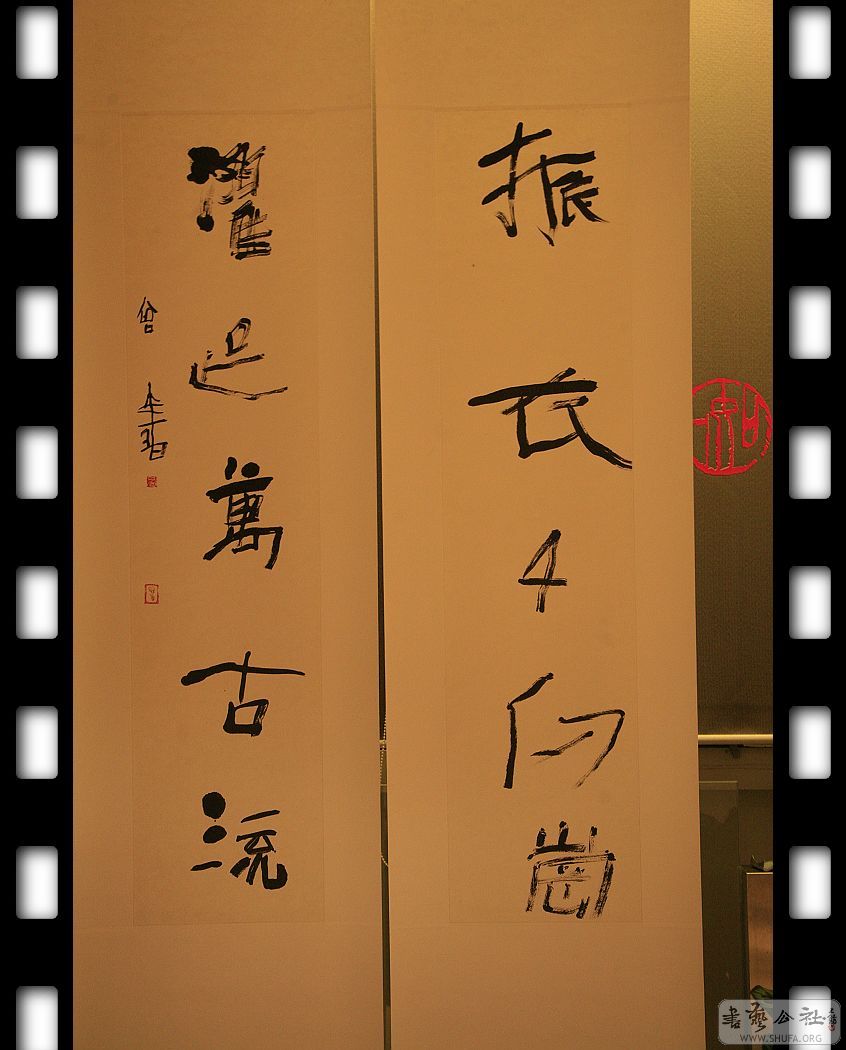 振衣千仞崗
濯足萬古流
書藝公社
WWW.SHUFA.ORG